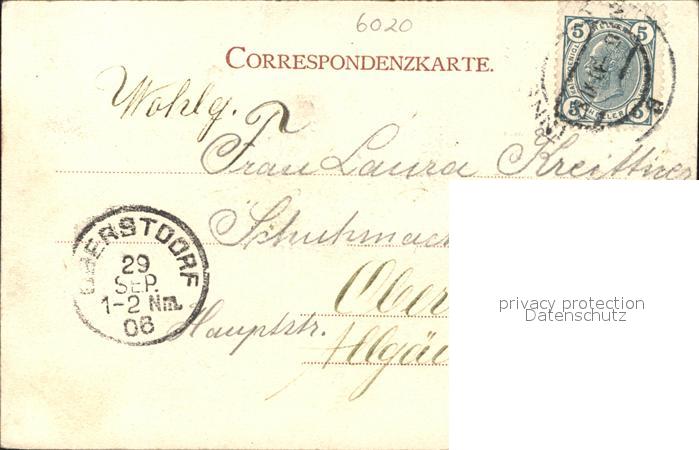 6020
CORRESPONDENZKARTE.
5 5
5 5
HELLER
Wohlg.
Frau Laura Kreittner
Schuhmach
Ober
Hauptstr.
Allgäu
OBERSTDORF
29
SEP.
1-2 Nm.
06
privacy protection
Datenschutz